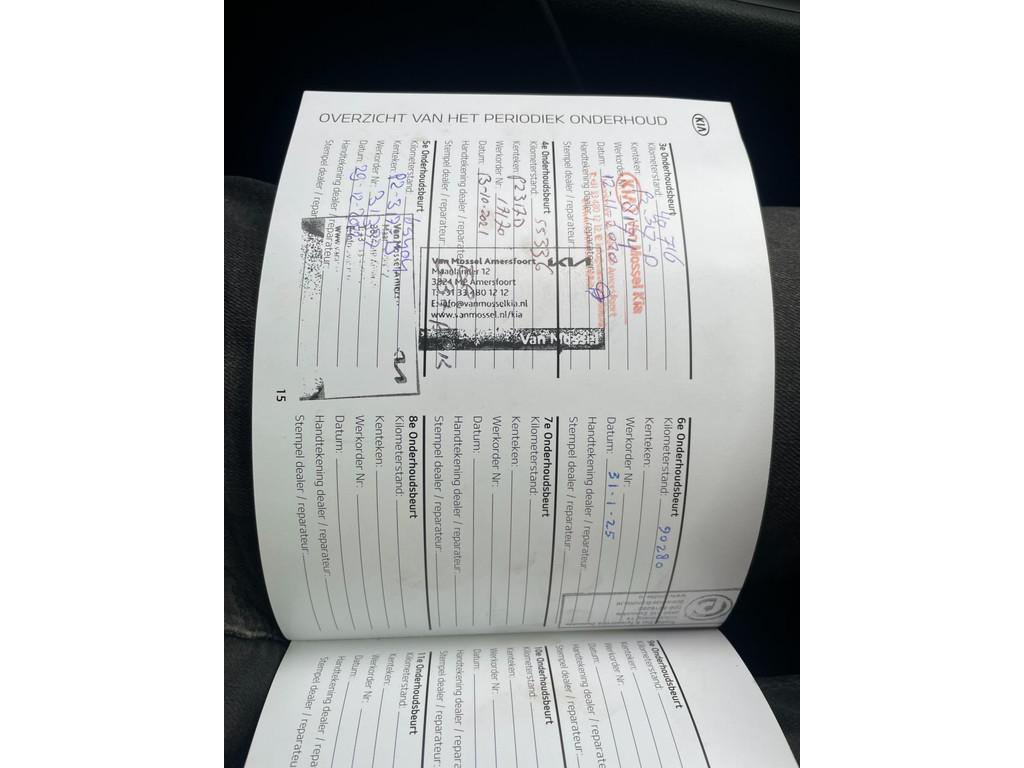 KIA
OVERZICHT VAN HET PERIODIEK ONDERHOUD
3e Onderhoudsbeurt
Kilometerstand: 4076
Kenteken:
Werkorder
Datum: 12-11-2020
Handtekening dealer / reparateur:
Stempel dealer / reparateur:
Van Mossel Kia
4e Onderhoudsbeurt
Kilometerstand: 55336
Kenteken: P231ZD
Werkorder Nr.: 13120
Datum: 13-10-2021
Handtekening dealer / reparateur:
Stempel dealer / reparateur:
Van Mossel Amersfoort
Maanlander 12
3824 MP Amersfoort
T: +31 33 480 12 12
E: info@vanmosselkia.nl
www.vanmossel.nl/kia
Van Mossel
5e Onderhoudsbeurt
Kilometerstand:
Kenteken:
Werkorder Nr.:
Datum:
Handtekening dealer / reparateur:
Stempel dealer / reparateur:
Van Mossel Amers
6e Onderhoudsbeurt
Kilometerstand: 90280
Kenteken:
Werkorder Nr.:
Datum: 31-1-25
Handtekening dealer / reparateur:
Stempel dealer / reparateur:
7e Onderhoudsbeurt
Kilometerstand:
Kenteken:
Werkorder Nr.:
Datum:
Handtekening dealer / reparateur:
Stempel dealer / reparateur:
8e Onderhoudsbeurt
Kilometerstand:
Kenteken:
Werkorder Nr.:
Datum:
Handtekening dealer / reparateur:
Stempel dealer / reparateur:
15
9e Onderhoudsbeurt
Kilometerstand:
Kenteken:
Werkorder Nr.:
Datum:
Handtekening dealer / reparateur:
Stempel dealer / reparateur:
10e Onderhoudsbeurt
Kilometerstand:
Kenteken:
Werkorder Nr.:
Datum:
Handtekening dealer / reparateur:
Stempel dealer / reparateur:
11e Onderhoudsbeurt
Kilometerstand:
Kenteken:
Werkorder Nr.:
Datum:
Handtekening dealer / repara
Stempel dealer / reparateu